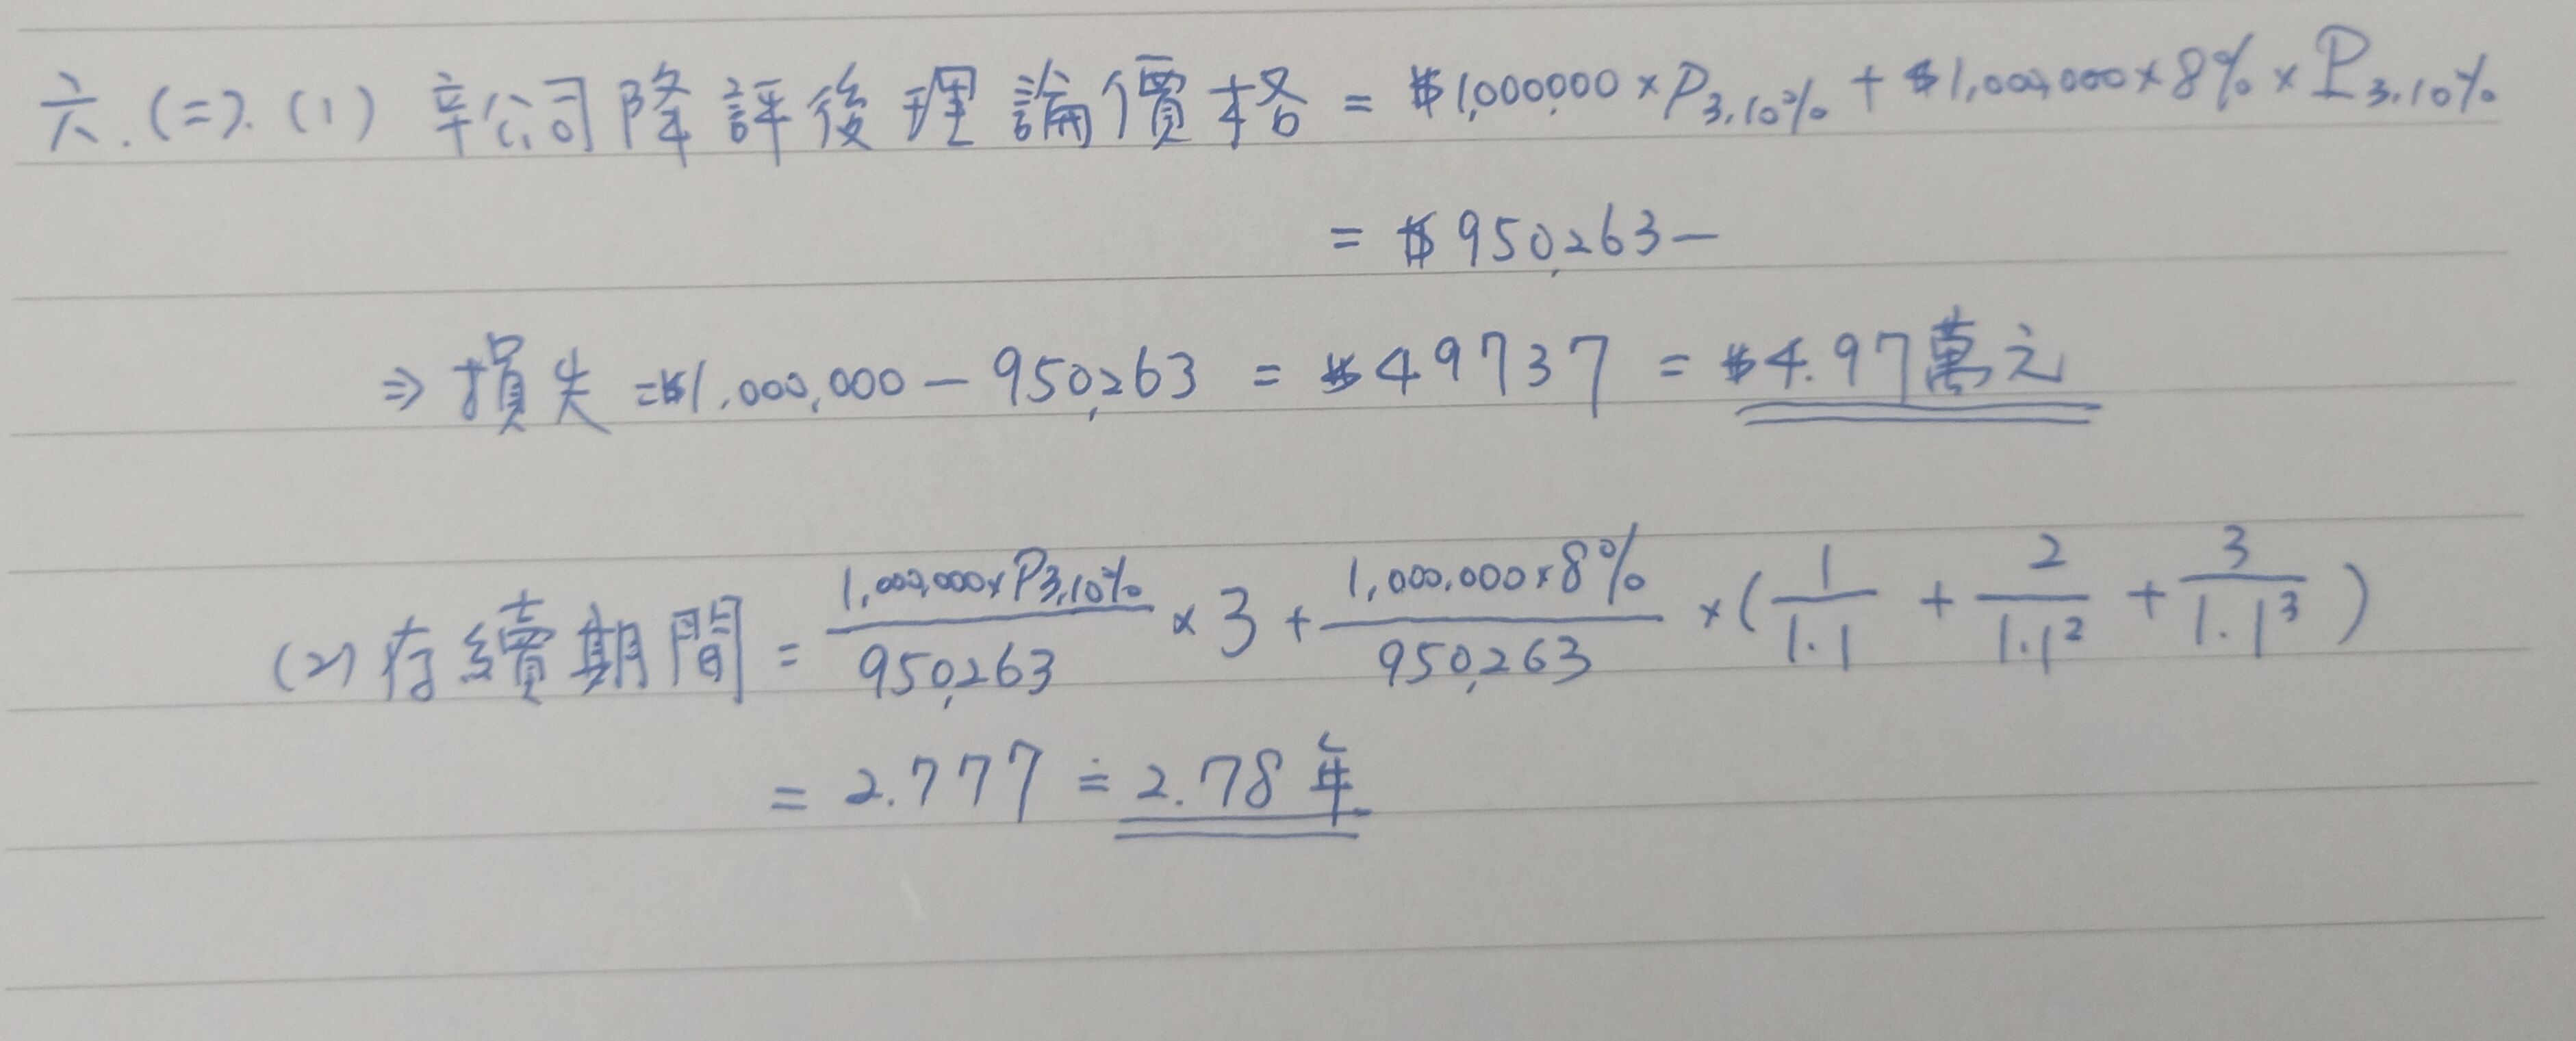 六.(二).(1) 辛公司降評後理論價格 = $1,000,000 × p3,10% + $1,000,000 × 8% × P3,10%
= $950,263-
⇒ 損失 = $1,000,000 - 950,263 = $49737 = $4.97萬元
(2) 存續期間 = 1,000,000 × P3,10% / 950,263 × 3 + 1,000,000 × 8% / 950,263 × (1/1.1 + 2/1.1² + 3/1.1³)
= 2.777 ≐ 2.78 年